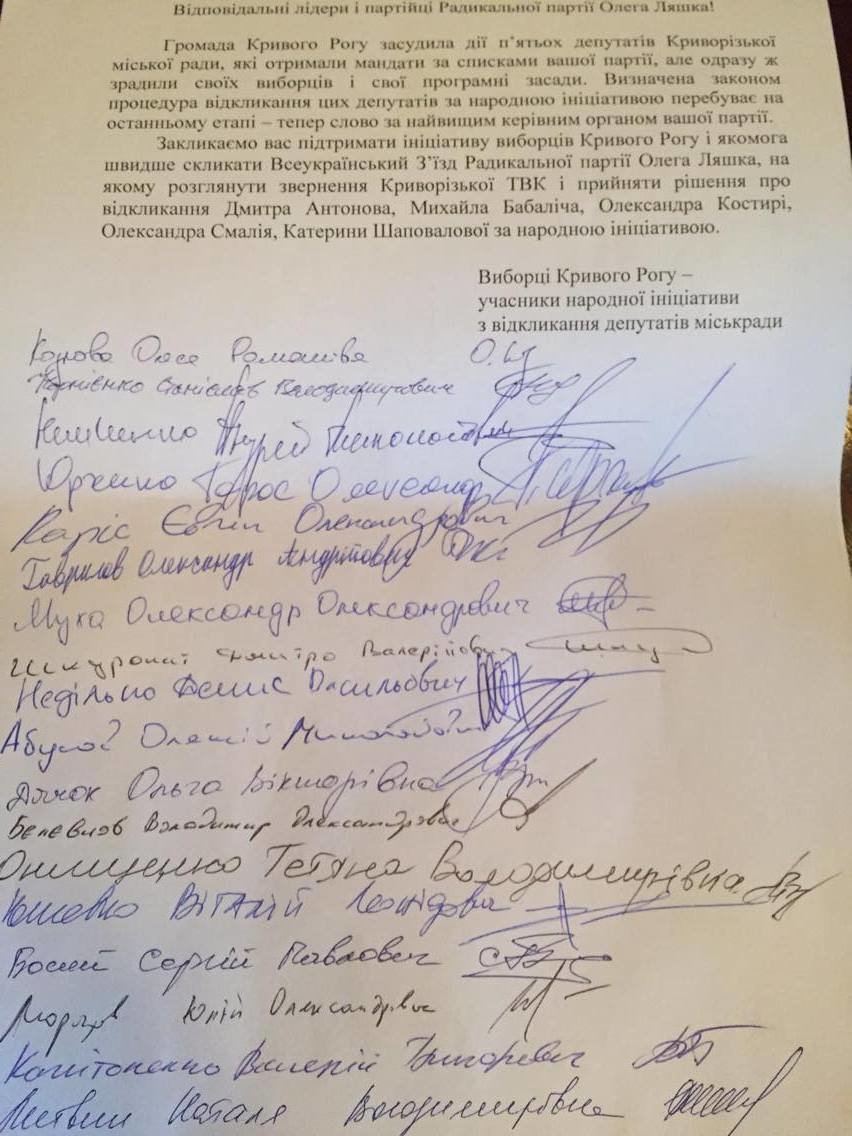 Відповідальні лідери і партійці Радикальної партії Олега Ляшка!
Громада Кривого Рогу засудила дії п’ятьох депутатів Криворізької
міської ради, які отримали мандати за списками вашої партії, але одразу ж
зрадили своїх виборців і свої програмні засади. Визначена законом
процедура відкликання цих депутатів за народною ініціативою перебуває на
останньому етапі – тепер слово за найвищим керівним органом вашої партії.
Закликаємо вас підтримати ініціативу виборців Кривого Рогу і якомога
швидше скликати Всеукраїнський З’їзд Радикальної партії Олега Ляшка, на
якому розглянути звернення Криворізької ТВК і прийняти рішення про
відкликання Дмитра Антонова, Михайла Бабаліча, Олександра Костирі,
Олександра Смалія, Катерини Шаповалової за народною ініціативою.
Виборці Кривого Рогу –
учасники народної ініціативи
з відкликання депутатів міськради
Олеся Романівна
Станіслав Володимирович
Андрій
Юрченко Тарас Олександр
Каріс Євген Олександрович
Гаврилов Олександр Андрійович
Муха Олександр Олександрович
Шкуропат Дмитро Валерійович
Недільно Денис Васильович
Олексій Миколайович
Дячок Ольга Вікторівна
Володимир Олександрович
Онищенко Тетяна Володимирівна
Віталій Леонідович
Босий Сергій Павлович
Юрій Олександрович
Капітоненко Валерій Григорович
Литвин Наталя Володимирівна